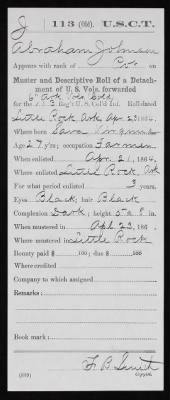 J 113 (Old). U.S.C.T.
Abraham Johnson
Appears with rank of Pvt on
Muster and Descriptive Roll of a Detach-
ment of U. S. Vols. forwarded
6" Ark Vols Cold
for the 113 Reg't U.S. Col'd Inf. Roll dated
Little Rock Ark Apr 23, 1864.
Where born
Age 27 y'rs; occupation Farmer
When enlisted Apr. 21, 1864.
Where enlisted Little Rock, Ark
For what period enlisted 3 years.
Eyes Black; hair Black
Complexion Dark; height 5 ft. 8 in.
When mustered in Apl 23, 1864.
Where mustered in Little Rock
Bounty paid $ 100; due $ 100
Where credited
Company to which assigned
Remarks:
Book mark:
F. B. Smith
Copyist.